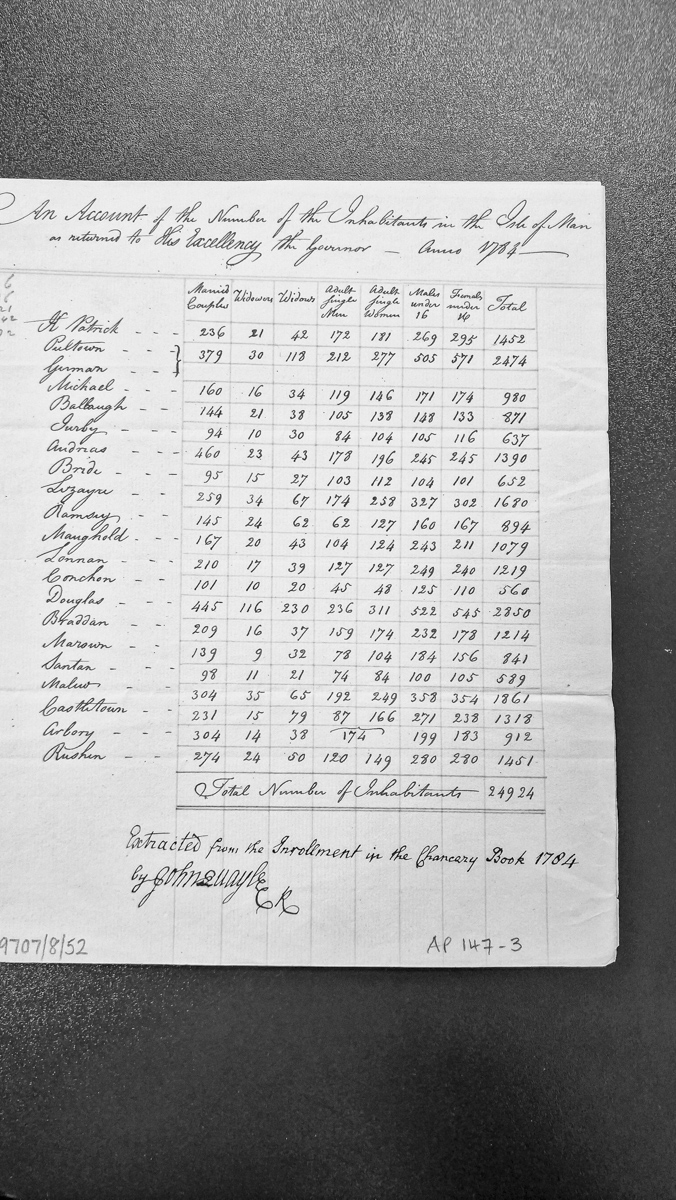 An Account of the Number of the Inhabitants in the Isle of Man
as returned to His Excellency the Governor — Anno 1784 —
Married Couples Widowers Widows Adult Single Men Adult Single Women Males under 16 Females under 16 Total
Kk Patrick - - - 236 21 42 172 181 269 295 1452
Peeltown - - -
German - - - } 379 30 118 212 277 505 571 2474
Michael - - - 160 16 34 119 146 171 174 980
Ballaugh - - 144 21 38 105 138 148 133 871
Jurby - - - 94 10 30 84 104 105 116 637
Andreas - - - 460 23 43 178 196 245 245 1390
Bride - - - 95 15 27 103 112 104 101 652
Lezayre - - - 259 34 67 174 258 327 302 1680
Ramsey - - - 145 24 62 62 127 160 167 894
Maughold - - - 167 20 43 104 124 243 211 1079
Lonnan - - - 210 17 39 127 127 249 240 1219
Conchon - - - 101 10 20 45 48 125 110 560
Douglas - - - 445 116 230 236 311 522 545 2850
Braddan - - 209 16 37 159 174 232 178 1214
Marown - - 139 9 32 78 104 184 156 841
Santan - - - 98 11 21 74 84 100 105 589
Malew - - - 304 35 65 192 249 358 354 1861
Castletown - - 231 15 79 87 166 271 238 1318
Arbory - - - 304 14 38 174 199 183 912
Rushen - - 274 24 50 120 149 280 280 1451
Total Number of Inhabitants 24924
Extracted from the Inrollment in the Chancery Book 1784
by John Quayle
CR
9707/8/52
AP 147-3